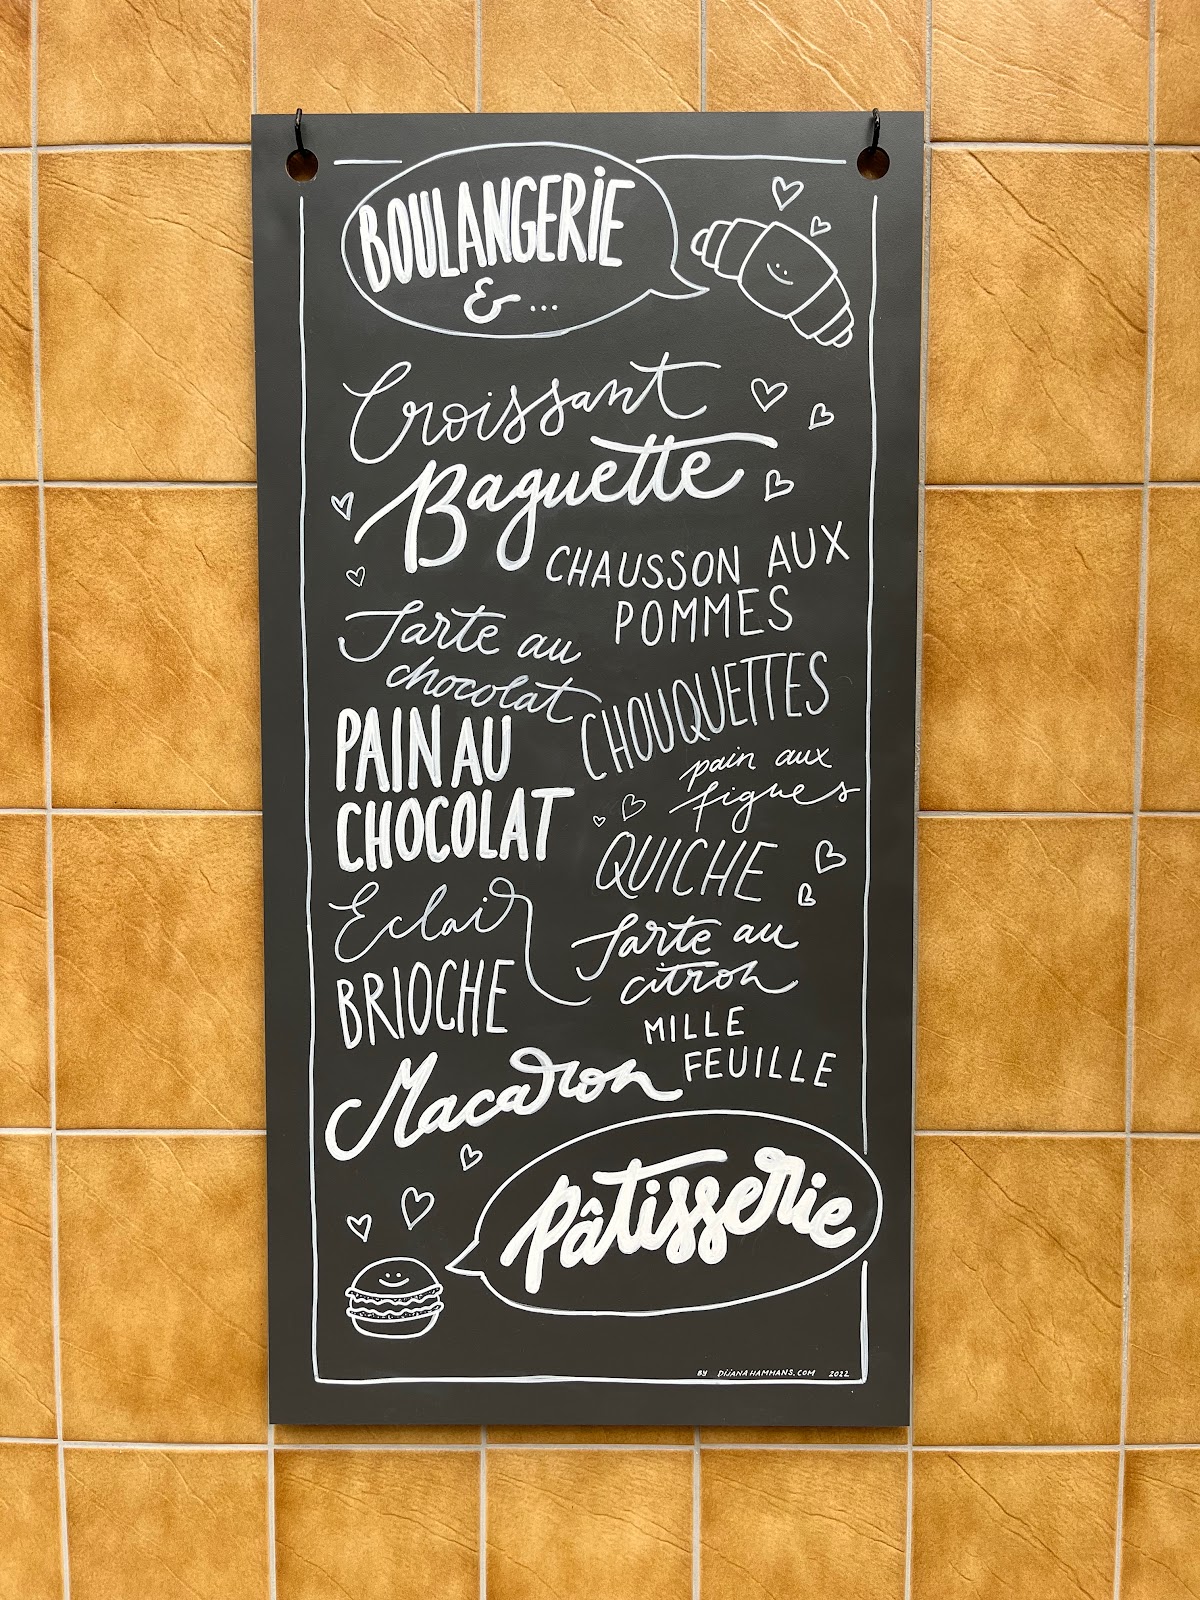 BOULANGERIE
& ...
Croissant
Baguette
CHAUSSON AUX
POMMES
Tarte au
chocolat
CHOUQUETTES
PAIN AU
CHOCOLAT
pain aux
figues
QUICHE
Eclair
Tarte au
citron
BRIOCHE
MILLE
FEUILLE
Macaron
Pâtisserie
BY DIJANAHAMMANS.COM 2022